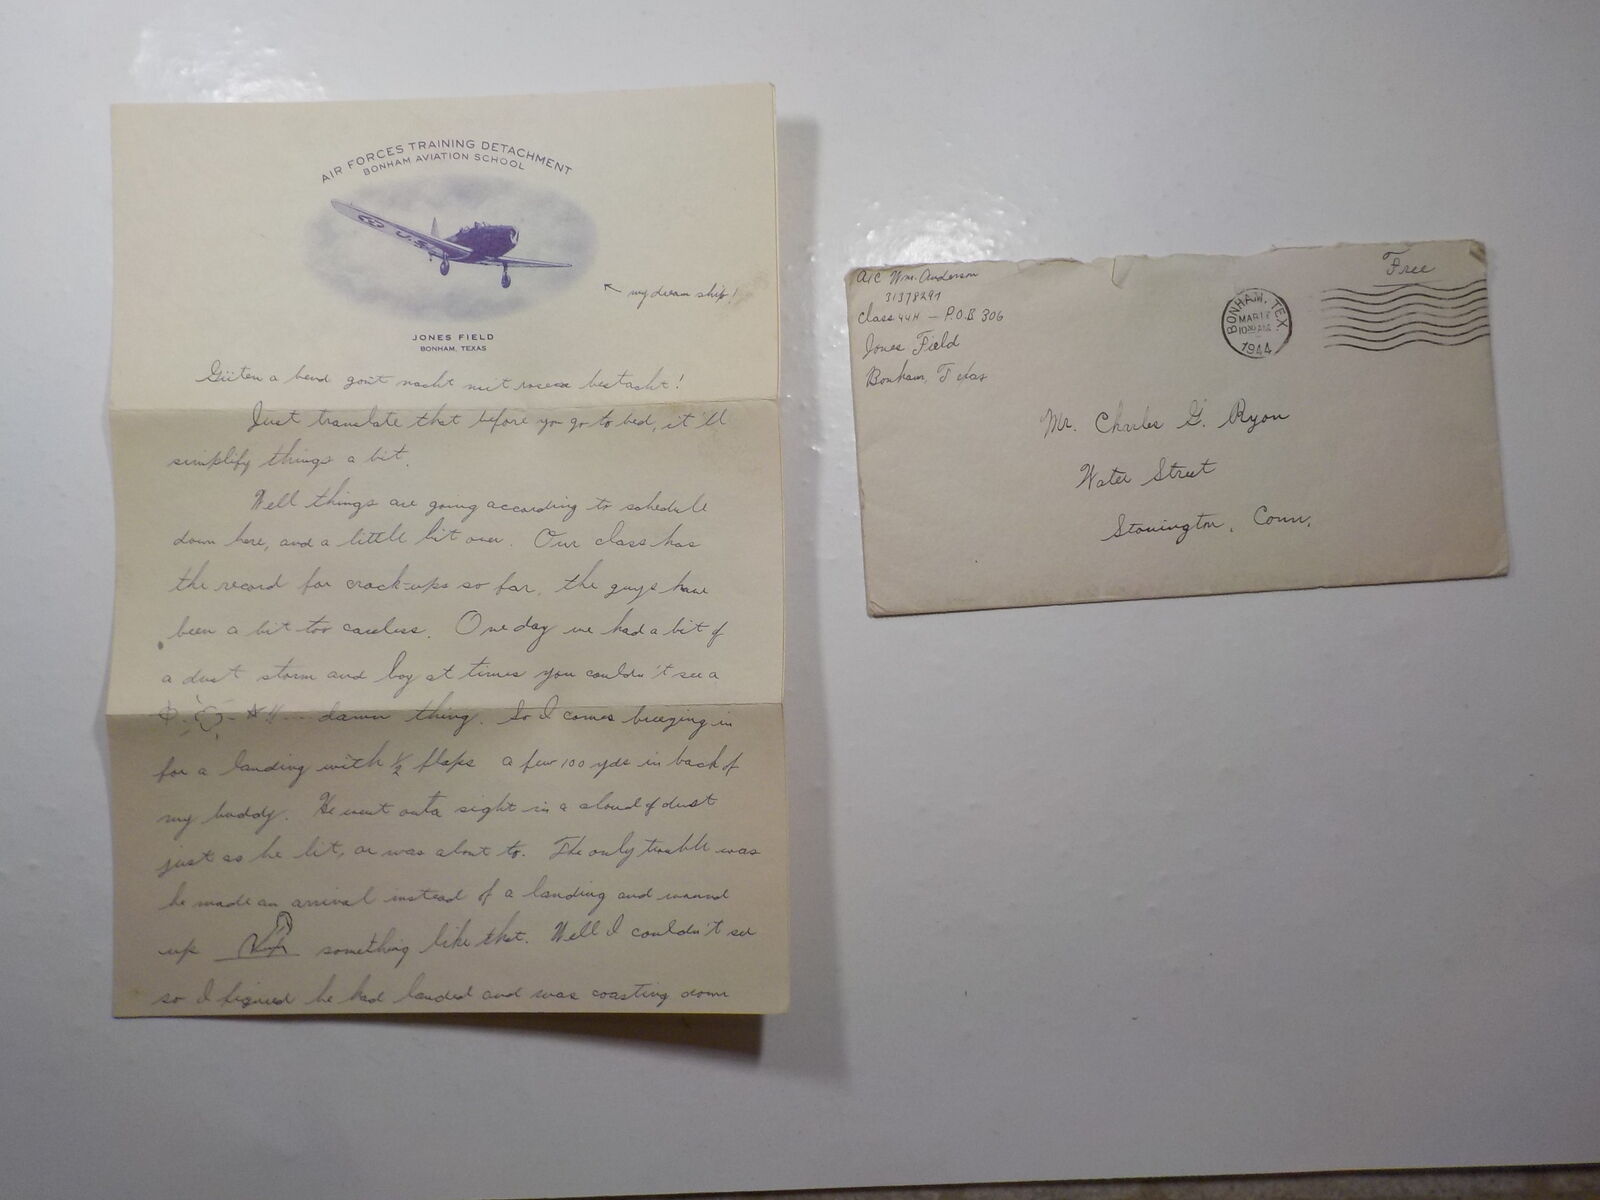 AIR FORCES TRAINING DETACHMENT
BONHAM AVIATION SCHOOL
U.S.
my dream ship!
JONES FIELD
BONHAM, TEXAS
Güten a bend gout nacht mit rosen bestacht!
Just translate that before you go to bed, it'll
simplify things a bit.
Well things are going according to schedule
down here, and a little bit over. Our class has
the record for crack-ups so far, the guys have
been a bit too careless. One day we had a bit of
a dust storm and boy at times you couldn't see a
damn thing. So I comes breezing in
for a landing with ½ flaps a few 100 yds in back of
my buddy. He went outa sight in a cloud of dust
just as he lit, or was about to. The only trouble was
he made an arrival instead of a landing and wound
up something like that. Well I couldn't see
so I figured he had landed and was coasting down
A/C Wm. Anderson
31378291
Class 44H - P.O.B 306
Jones Field
Bonham, Texas
Free
BONHAM, TEX.
MAR 17
10 30 AM
1944
Mr. Charles G. Ryon
Water Street
Stonington, Conn.